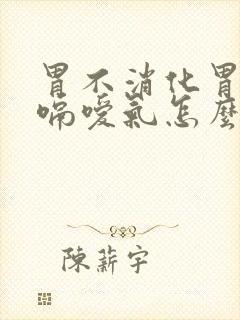 胃不消化胃
嗝噯氣怎麼
陳薪宇